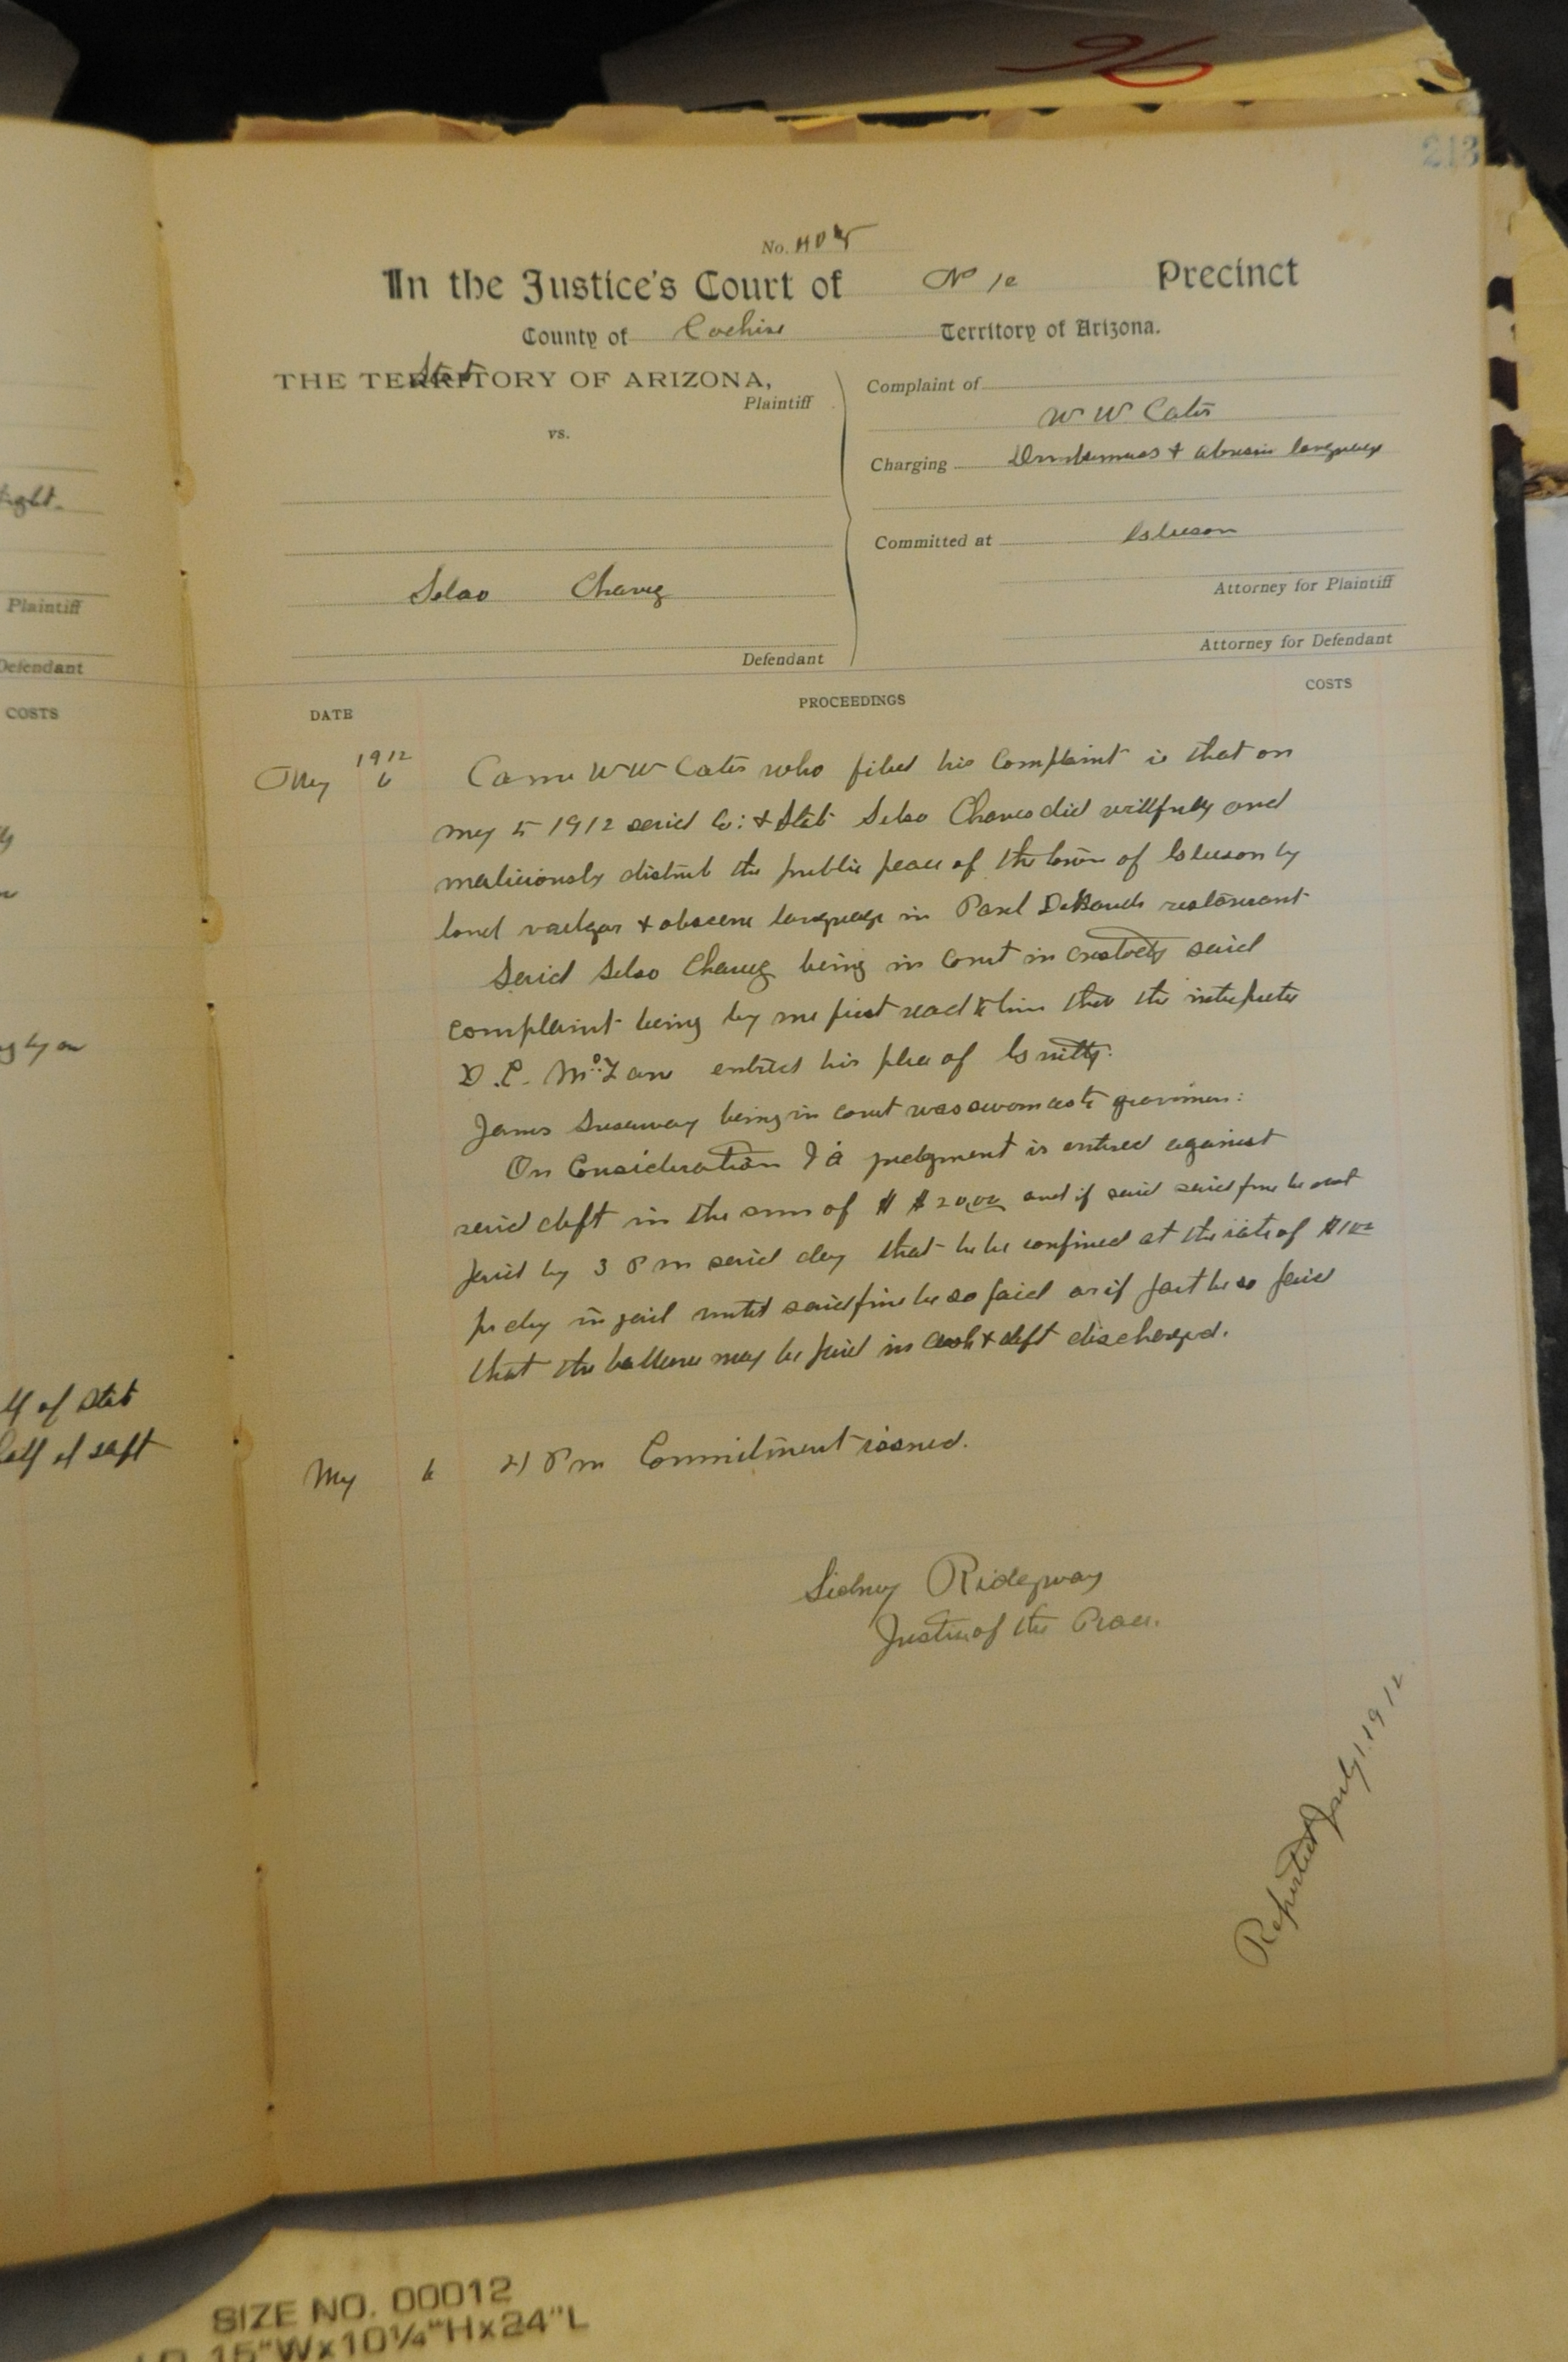 96
213
No. 405
In the Justice's Court of No 10 Precinct
County of Cochise Territory of Arizona.
State
THE TERRITORY OF ARIZONA,
Plaintiff
vs.
Selso Chavez
Defendant
Complaint of
W W Cates
Charging Drunkenness & abusive language
Committed at Gleeson
Attorney for Plaintiff
Attorney for Defendant
DATE PROCEEDINGS COSTS
1912
May 6 Came W W Cates who filed his Complaint is that on
May 5 1912 said Co: & State Selso Chaves did willfully and
maliciously disturb the public peace of the town of Gleeson by
loud vulgar & obscene language in restaurant
Said Selso Chavez being in Court in custody said
complaint being by me first read to him thro the interpreter
D. C. entered his plea of Guilty.
James being in court was sworn as to
On Consideration judgment is entered against
said deft in the sum of $ $20.00 and if said said fine be not
paid by 3 P m said day that he be confined at the rate of $1.00
pr day in jail until said fine be so paid or if part be so paid
that the ballence may be paid in cash & deft discharged.
May 6 P m Commitment issued.
Sidney Ridgway
Justice of the Peace.
Reported July 1. 1912
ight.
Plaintiff
Defendant
COSTS
g by on
lf of State
half of deft
SIZE NO. 00012
15"Wx10¼"Hx24"L